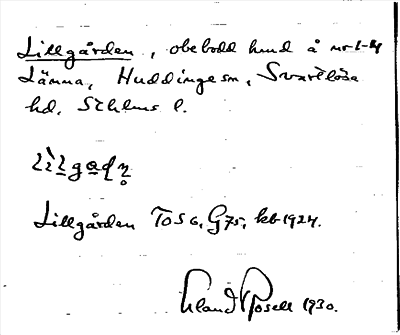 Lillgården, obebodd hmd å nr 1-4
Länna, Huddinge sn, Svartlösa
hd. Sthlms l.
Lillgården Tos 6, G 75, kb 1924.
Erland Rosell 1930.